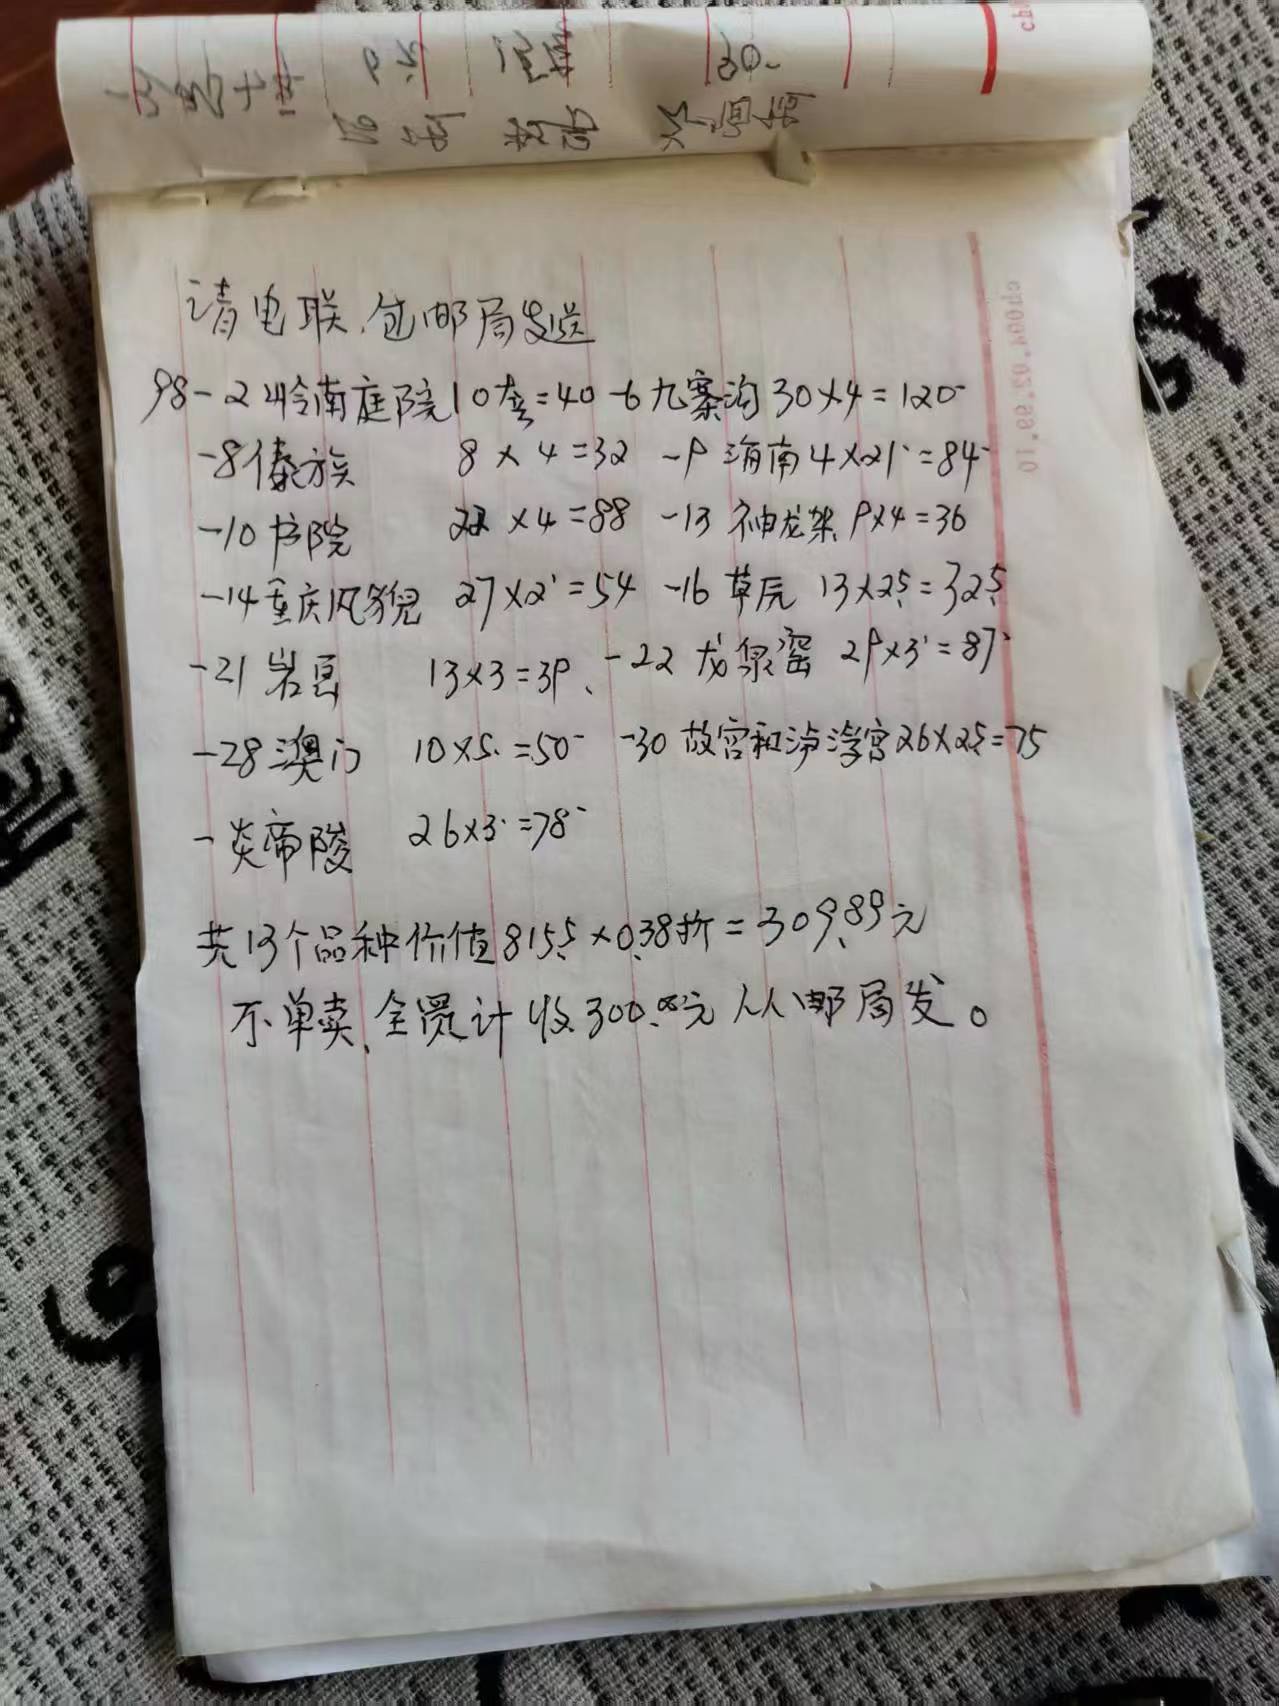 请电联、包邮局发送
98-2岭南庭院10套=40 -6九寨沟30×4=120
-8傣族 8×4=32 -9海南4×21=84
-10书院 22×4=88 -13神龙架9×4=36
-14重庆风貌 27×2=54 -16草原 13×2.5=32.5
-21岩画 13×3=39、-22龙泉窑 29×3=87
-28澳门 10×5.=50 -30故宫和卢浮宫26×2.5=75
-炎帝陵 26×3=78
共13个品种价值815.5×0.38折=309.89元
不单卖、全买计收300.00元从邮局发。